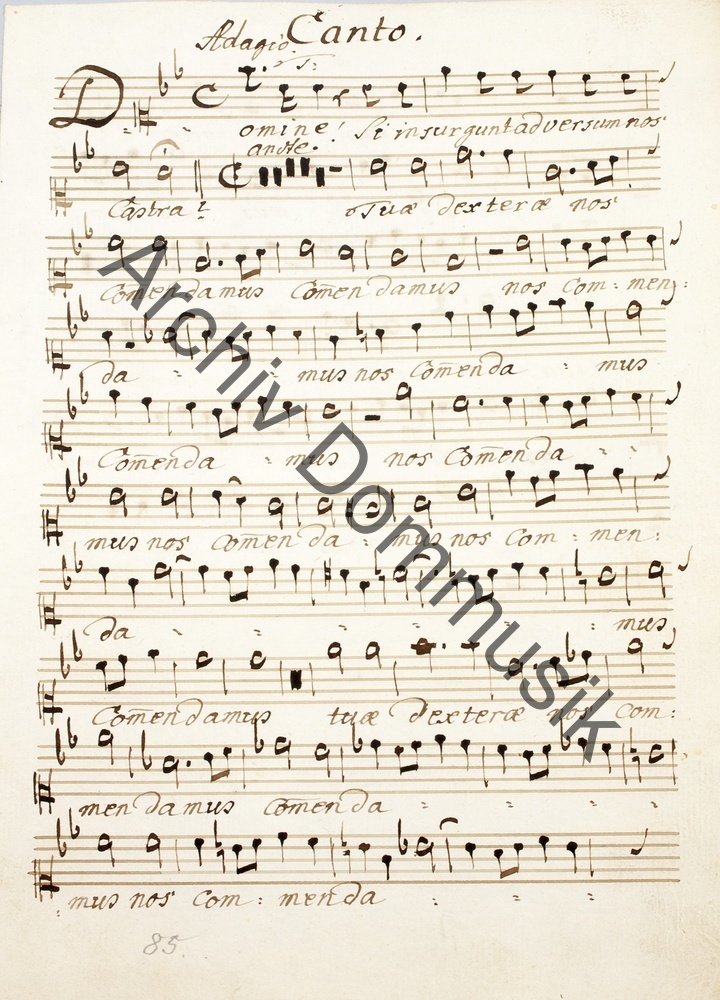 Adagio. Canto.
Domine! Si insurgunt adversum nos
andte.
Castra! Tuæ dexteræ nos
Com̄endamus Com̄endamus nos Com: men:
da mus nos Com̄enda mus
Com̄enda mus nos Com̄enda
mus nos Com̄en da mus nos Com: men:
da mus
Com̄endamus tuæ dexteræ nos Com:
mendamus Com̄enda
mus nos Com: menda
85.
Archiv Dommusik